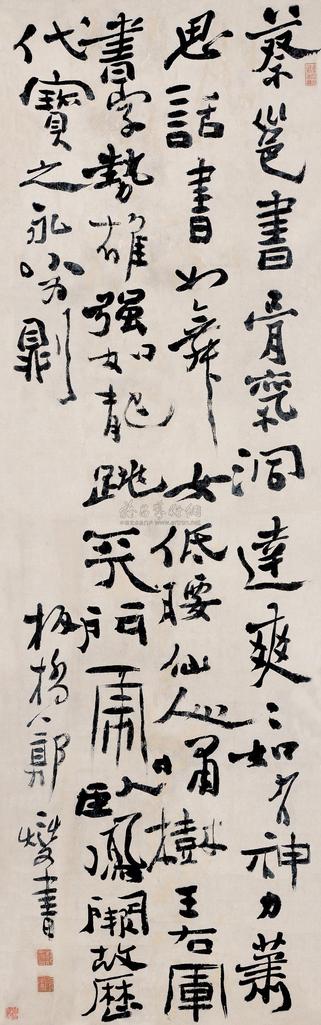 蔡邕書骨氣洞達爽〻如有神力蕭
思話書如舞女低腰仙人嘯樹王右軍
書字勢雄強如龍跳天門虎臥鳳闕故歷
代寶之永以為則
板橋鄭燮書